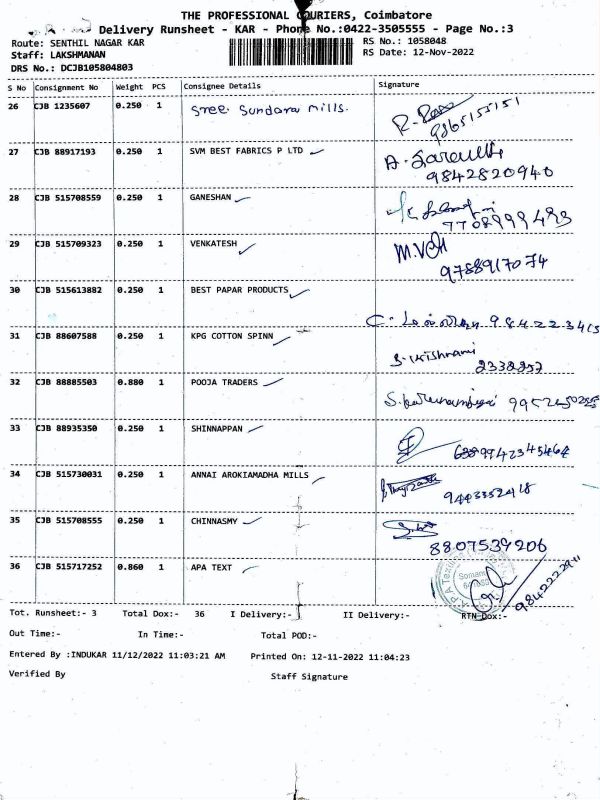 THE PROFESSIONAL COURIERS, Coimbatore
Delivery Runsheet - KAR - Phone No.:0422-3505555 - Page No.:3
Route: SENTHIL NAGAR KAR
RS No.: 1058048
Staff: LAKSHMANAN
RS Date: 12-Nov-2022
DRS No.: DCJB105804803
S No Consignment No Weight PCS Consignee Details Signature
26 CJB 1235607 0.250 1 Sree. Sundara mills.
9865155151
27 CJB 88917193 0.250 1 SVM BEST FABRICS P LTD
9842820940
28 CJB 515708559 0.250 1 GANESHAN
7708999493
29 CJB 515709323 0.250 1 VENKATESH
9788917074
30 CJB 515613882 0.250 1 BEST PAPAR PRODUCTS
31 CJB 88607588 0.250 1 KPG COTTON SPINN
32 CJB 88885503 0.880 1 POOJA TRADERS
33 CJB 88935350 0.250 1 SHINNAPPAN
34 CJB 515730031 0.250 1 ANNAI AROKIAMADHA MILLS
35 CJB 515708555 0.250 1 CHINNASMY
8807539206
36 CJB 515717252 0.860 1 APA TEXT
Tot. Runsheet:- 3 Total Dox:- 36 I Delivery:- II Delivery:- RTN Dox:-
Out Time:- In Time:- Total POD:-
Entered By :INDUKAR 11/12/2022 11:03:21 AM Printed On: 12-11-2022 11:04:23
Verified By Staff Signature